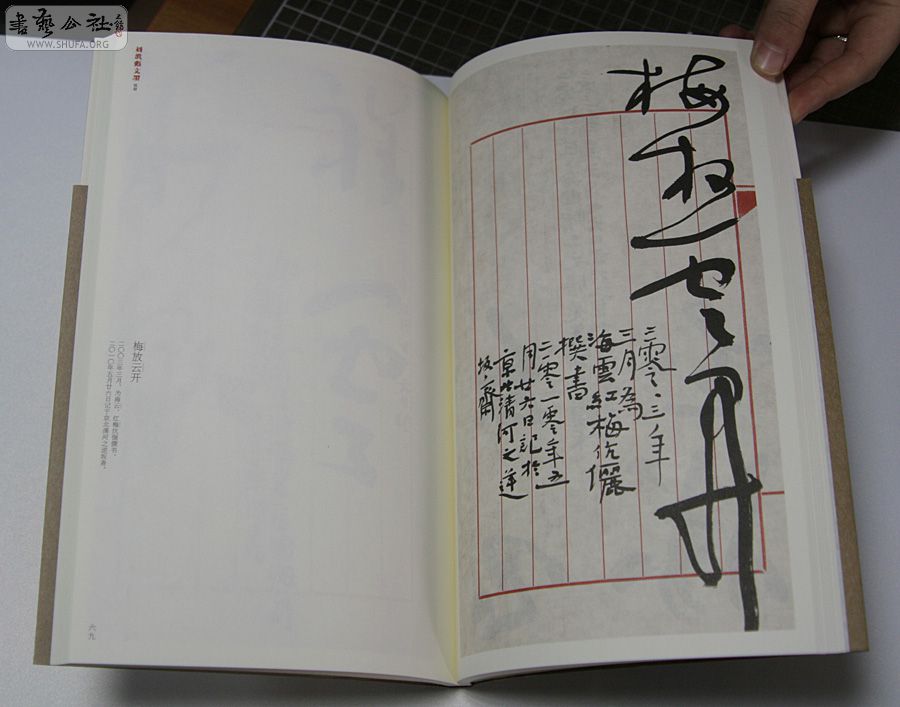 書藝公社
WWW.SHUFA.ORG
梅放云开
二零零三年
三月為
海雲紅梅伉儷
撰書
二零一零年五
月廿六日記於
京北清河之逆
坂齋
梅放云开
二〇〇三年三月，为海云、红梅伉俪撰书，
二〇一〇年五月廿六日记于京北清河之逆坂斋。
六九